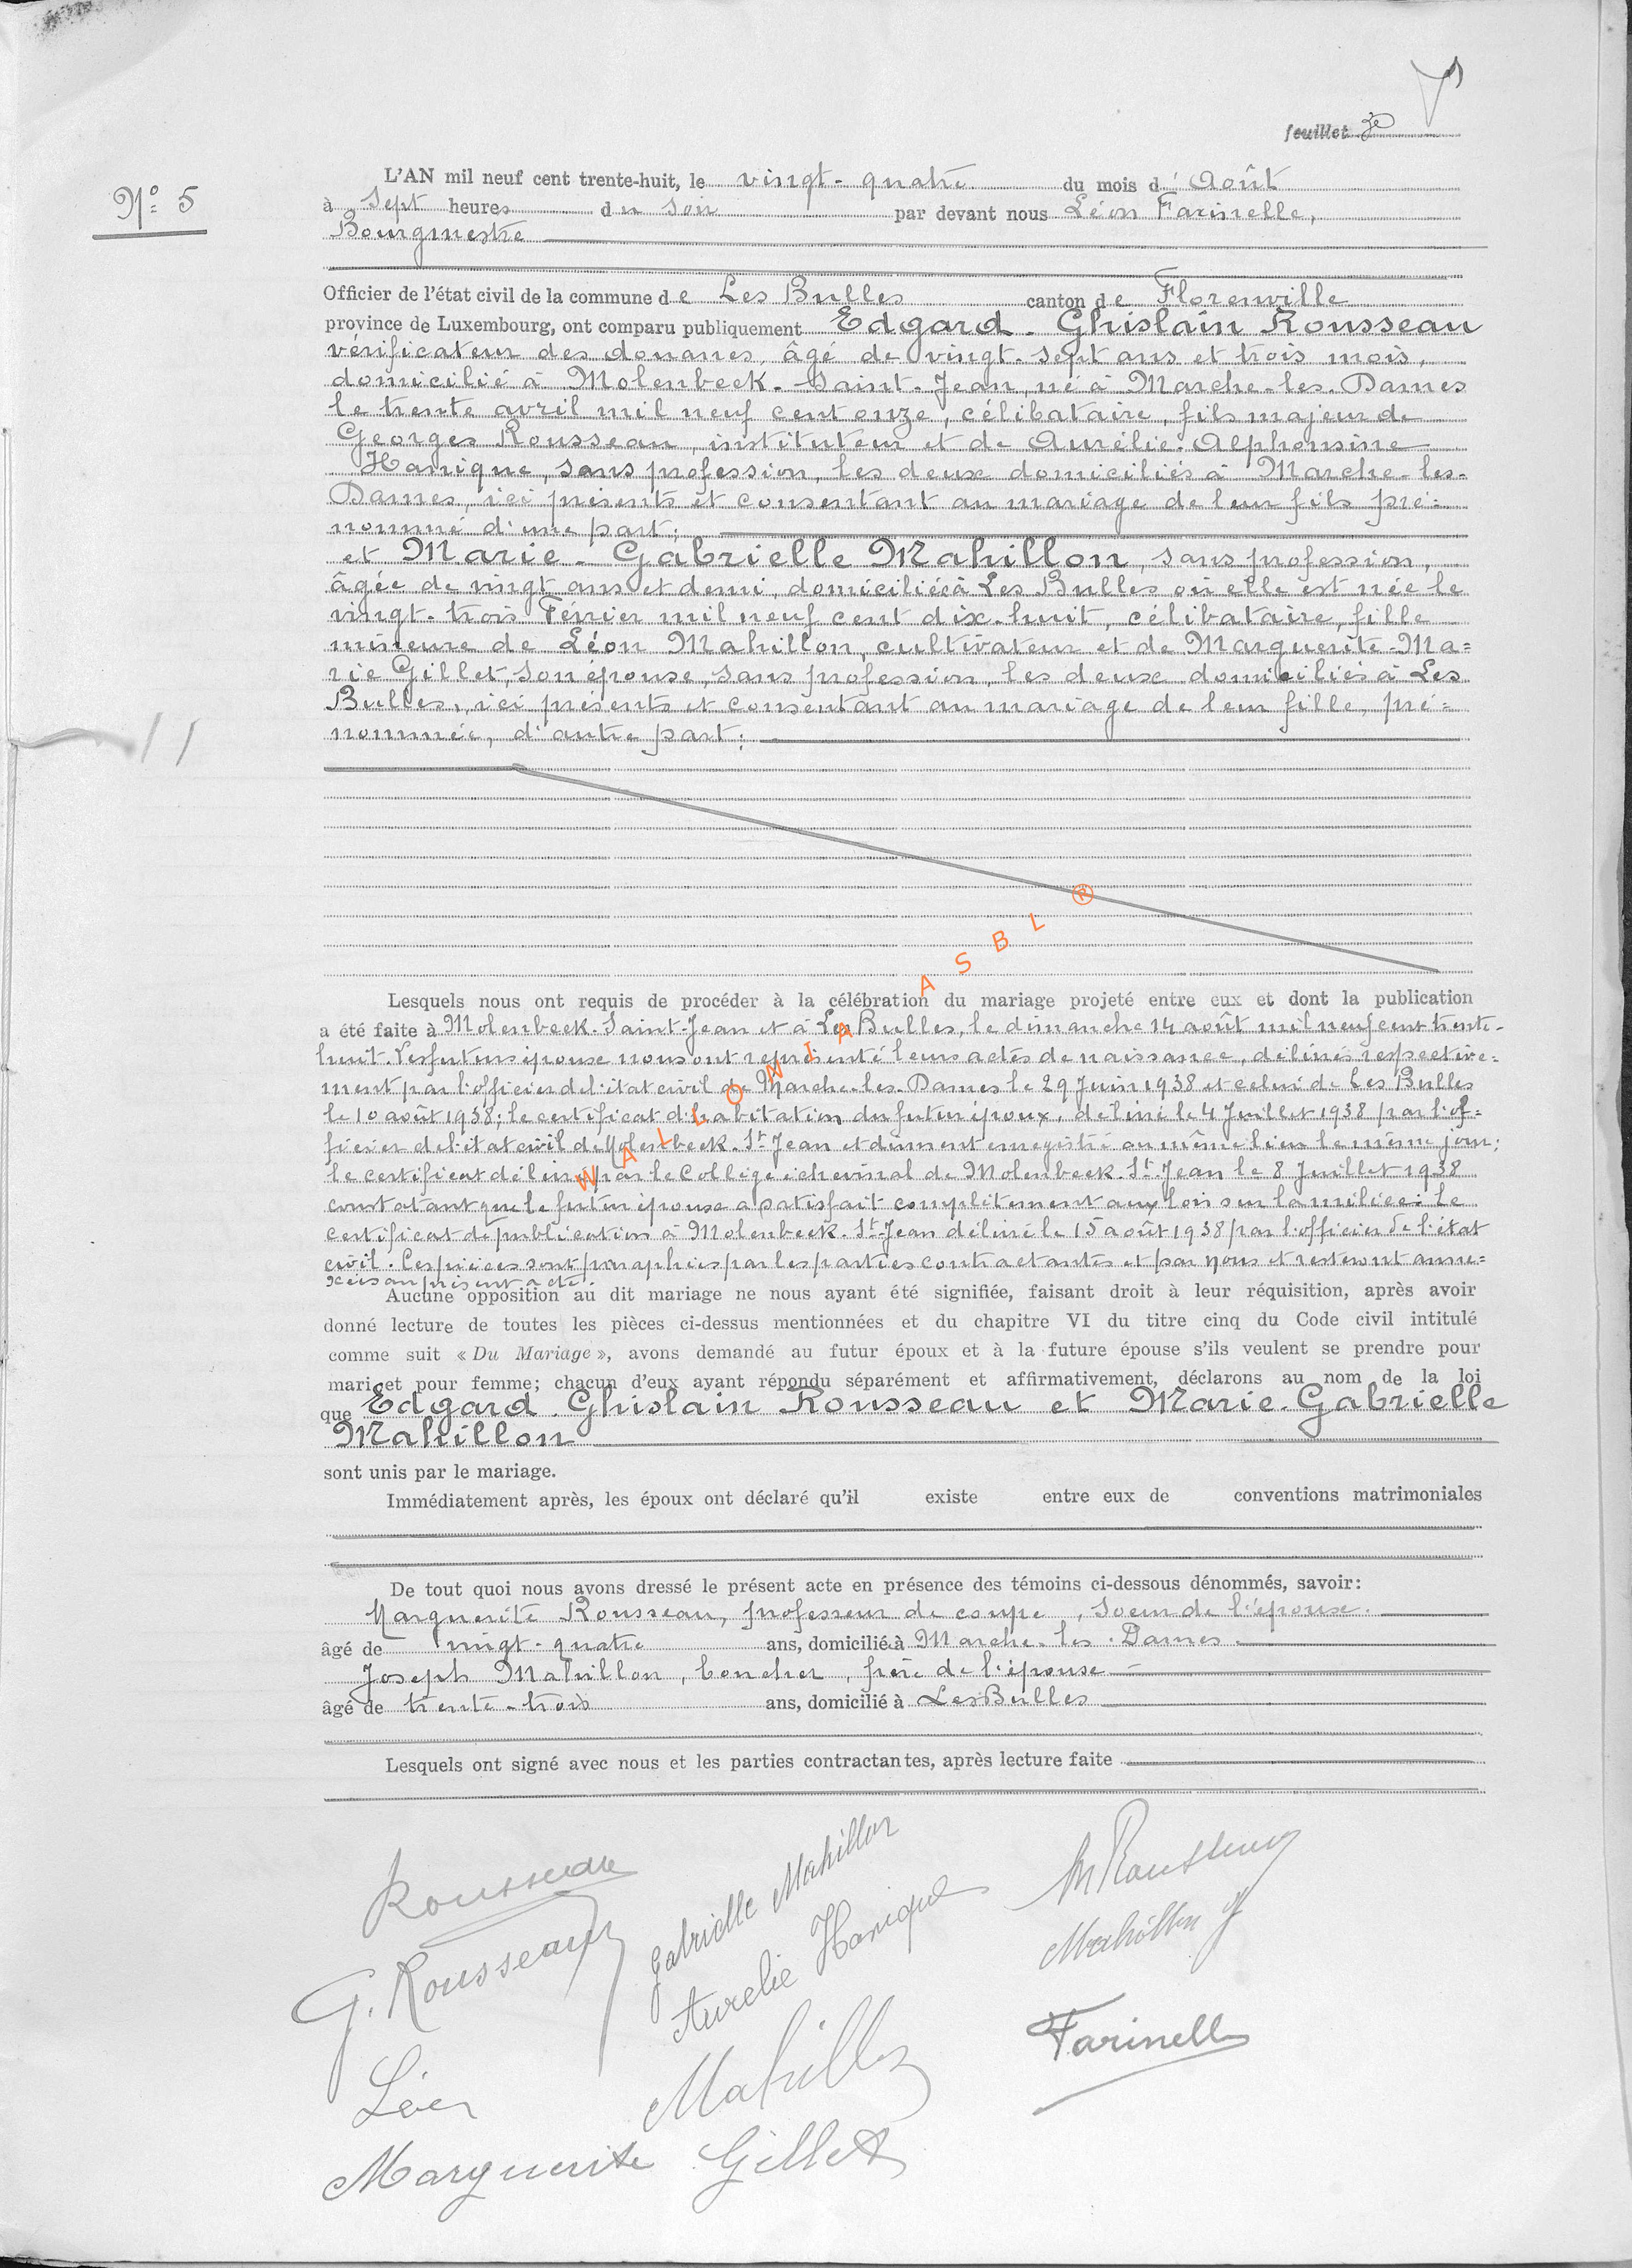 feuillet 3e
N° 5
L'AN mil neuf cent trente-huit, le vingt-quatre du mois d'Août
à sept heures du soir par devant nous Léon Farinelle,
Bourgmestre
Officier de l'état civil de la commune de Les Bulles canton de Florenville
province de Luxembourg, ont comparu publiquement Edgard-Ghislain Rousseau
vérificateur des douanes, âgé de vingt-sept ans et trois mois,
domicilié à Molenbeek-Saint-Jean, né à Marche-les-Dames
le trente avril mil neuf cent onze, célibataire, fils majeur de
Georges Rousseau, instituteur et de Aurélie-Alphonsine
Hanique, sans profession, les deux domiciliés à Marche-les-
Dames, ici présents et consentant au mariage de leur fils pré=
nommé d'une part;
et Marie-Gabrielle Mahillon, sans profession,
âgée de vingt ans et demi, domiciliée à Les Bulles où elle est née le
vingt-trois Février mil neuf cent dix-huit, célibataire, fille
mineure de Léon Mahillon, cultivateur et de Marguerite-Ma=
rie Gillet, son épouse, sans profession, les deux domiciliés à Les
Bulles, ici présents et consentant au mariage de leur fille, pré=
nommée, d'autre part;
Lesquels nous ont requis de procéder à la célébration du mariage projeté entre eux et dont la publication
a été faite à Molenbeek-Saint-Jean et à Les Bulles, le dimanche 14 août mil neuf cent trente-
huit. Les futurs époux nous ont représenté leurs actes de naissance, délivrés respective=
ment par l'officier de l'état civil de Marche-les-Dames le 29 Juin 1938 et celui de Les Bulles
le 10 août 1938; le certificat d'habitation du futur époux, délivré le 4 Juillet 1938 par l'of=
ficier de l'état civil de Molenbeek-St-Jean et dûment enregistré au même lieu le même jour;
le certificat délivré par le Collège échevinal de Molenbeek-St-Jean le 8 Juillet 1938
constatant que le futur époux a satisfait complètement aux lois sur la milice; le
certificat de publication à Molenbeek-St-Jean délivré le 15 août 1938 par l'officier de l'état
civil. Ces pièces sont paraphées par les parties contractantes et par nous et resteront anne=
xées au présent acte.
Aucune opposition au dit mariage ne nous ayant été signifiée, faisant droit à leur réquisition, après avoir
donné lecture de toutes les pièces ci-dessus mentionnées et du chapitre VI du titre cinq du Code civil intitulé
comme suit « Du Mariage », avons demandé au futur époux et à la future épouse s'ils veulent se prendre pour
mari et pour femme; chacun d'eux ayant répondu séparément et affirmativement, déclarons au nom de la loi
que Edgard-Ghislain Rousseau et Marie-Gabrielle
Mahillon
sont unis par le mariage.
Immédiatement après, les époux ont déclaré qu'il existe entre eux de conventions matrimoniales
De tout quoi nous avons dressé le présent acte en présence des témoins ci-dessous dénommés, savoir:
Marguerite Rousseau, professeur de coupe, soeur de l'époux.
âgé de vingt-quatre ans, domiciliée à Marche-les-Dames.
Joseph Mahillon, boucher, frère de l'épouse
âgé de trente-trois ans, domicilié à Les Bulles
Lesquels ont signé avec nous et les parties contractantes, après lecture faite
Rousseau Gabrielle Mahillon M Rousseau
G. Rousseau Aurelie Hanique Mahillon J
Léon Mahillon Farinelle
Marguerite Gillet
WALLONIA ASBL ®